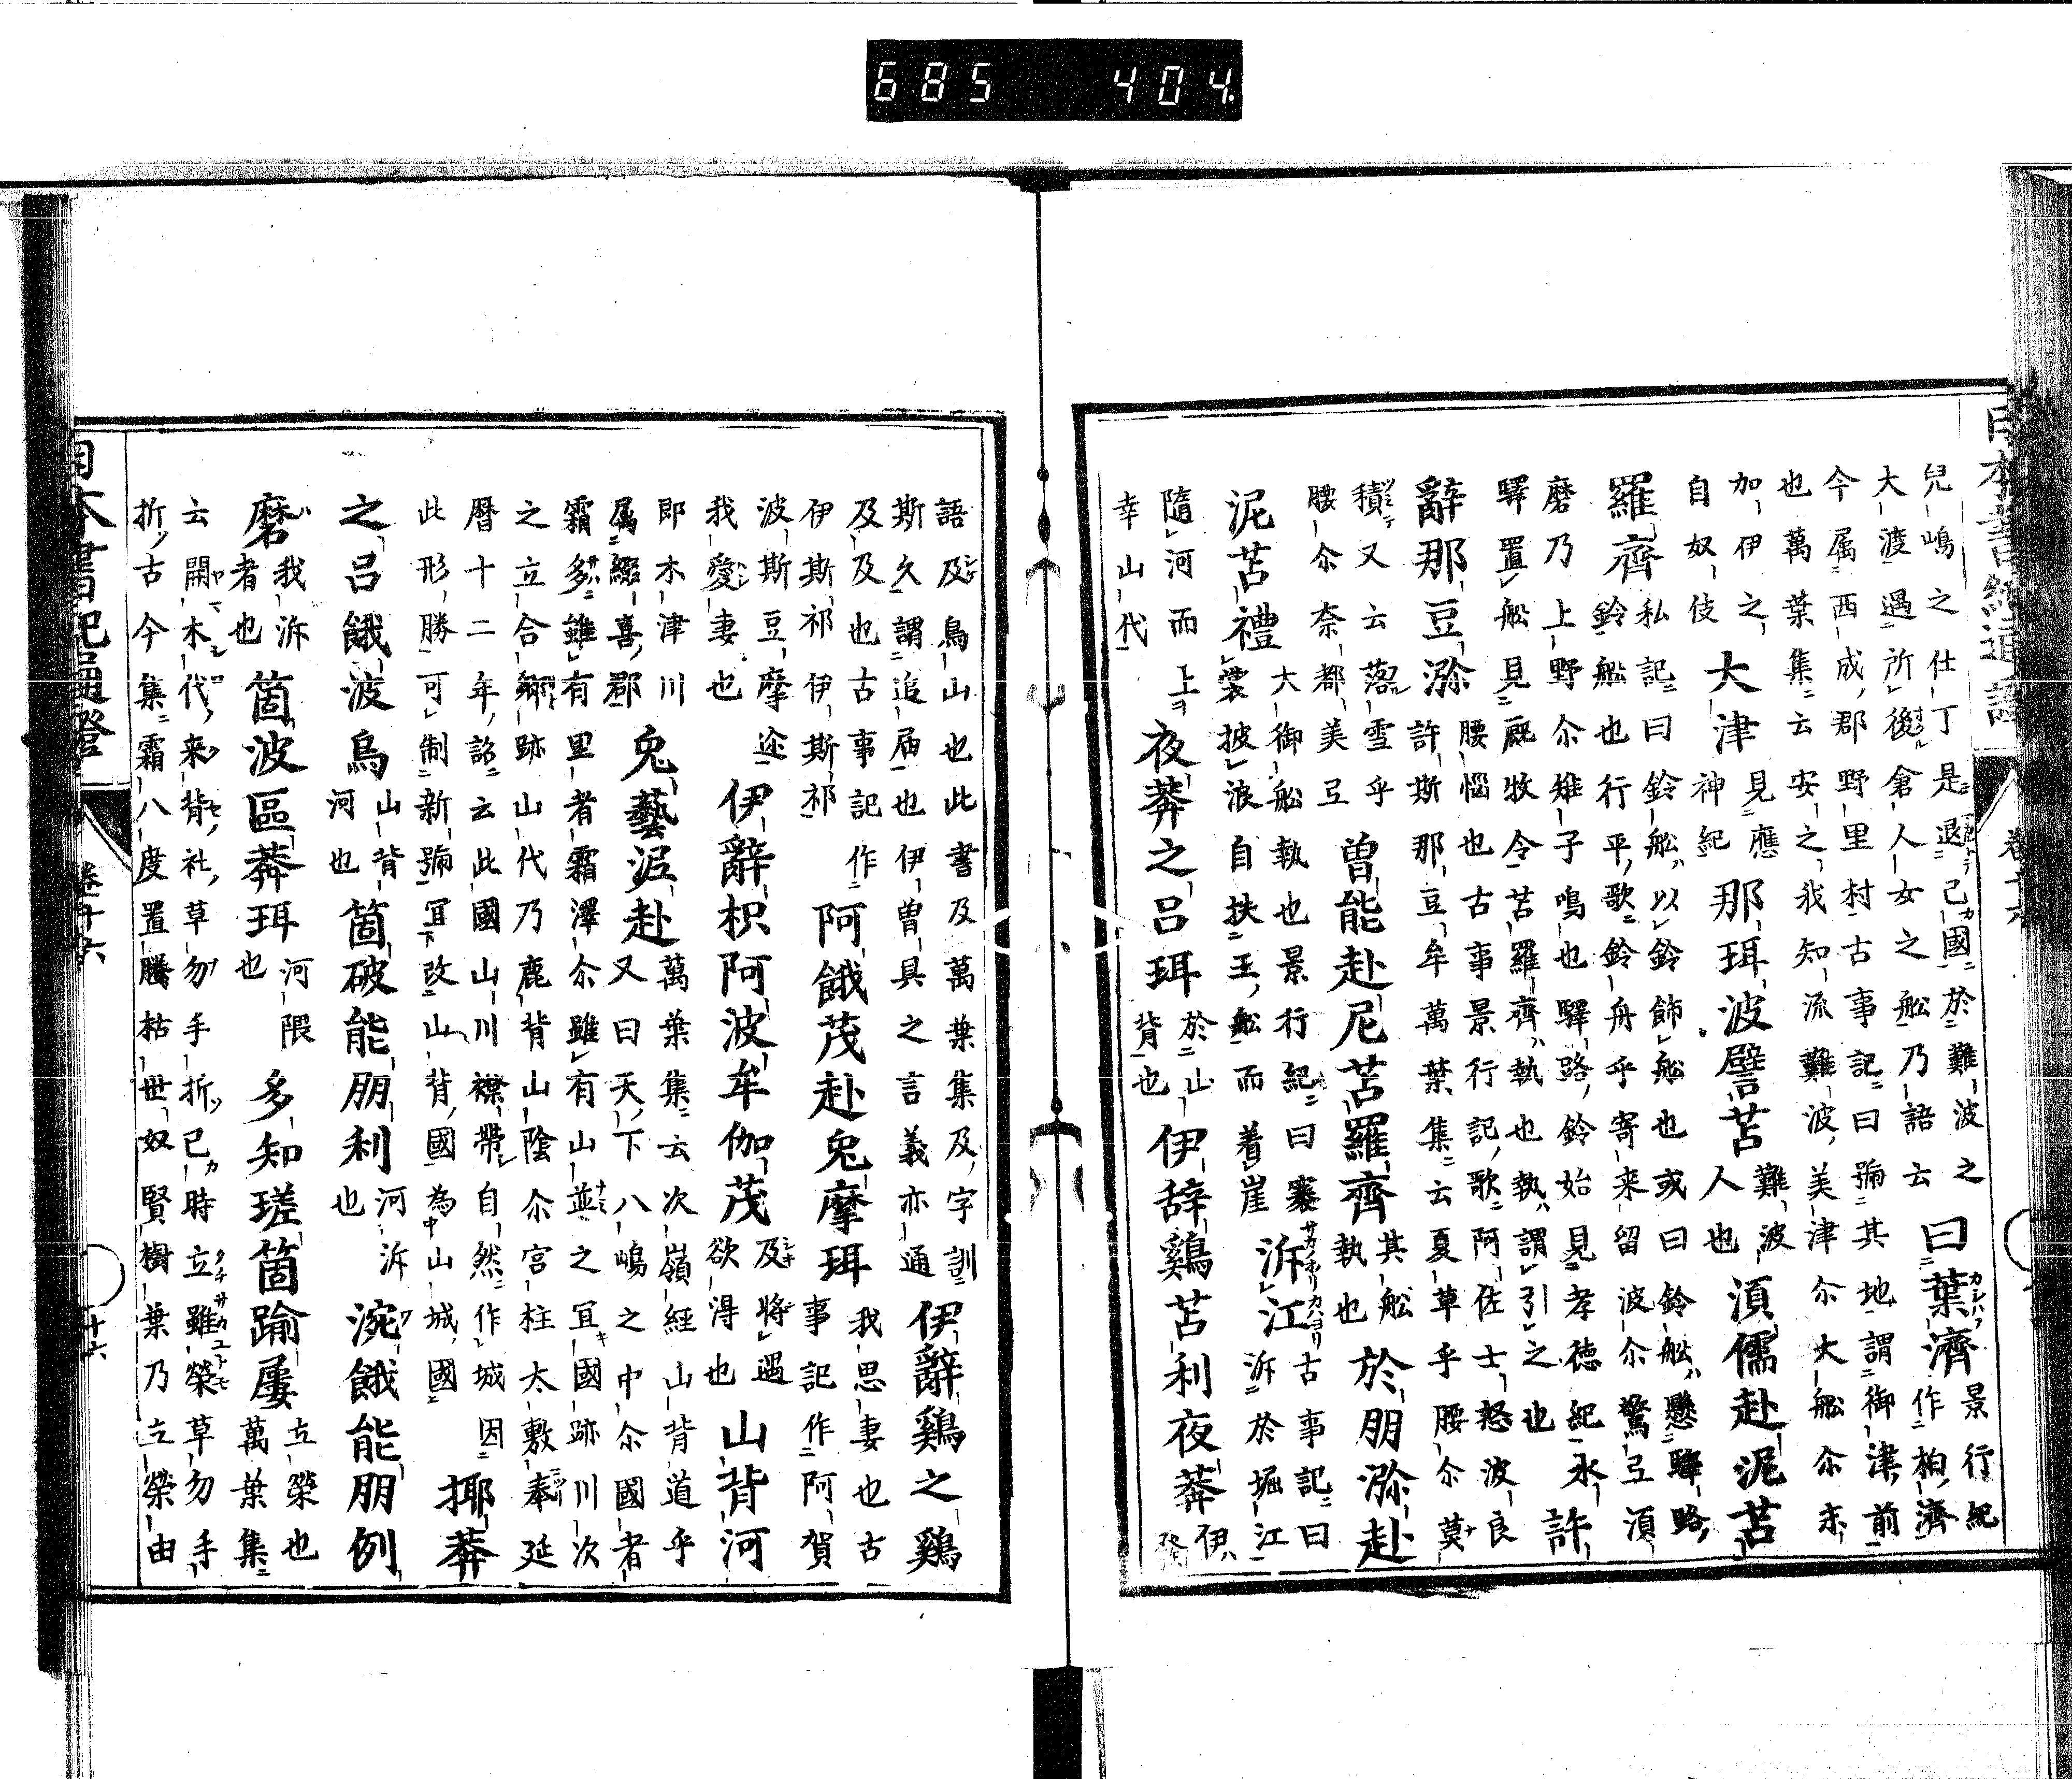 685 404
兒嶋之仕丁是退己國於難波之
大渡遇所後倉人女之舩乃語云
曰葉濟
景行紀作柏濟
今属西成郡野里村古事記曰號其地謂御津前
也萬葉集云安之我知流難波美津尒大舩尒末
加伊之
自奴伎
大津
見應
神紀
那珥波譬苫
難波
人也
湏儒赴泥苫
羅齊
私記曰鈴舩以鈴飾舩也或曰鈴舩懸驛路
鈴舩也行平歌鈴舟乎寄来留波尒驚弖湏
磨乃上野尒雉子鳴也驛路鈴始見孝徳紀
驛置舩見厩牧令苫羅齊執也執謂引之也
許
辭那豆泝
腰惱也古事景行記歌阿佐士怒波良
許斯那豆牟萬葉集云夏草乎腰尒莫
積又云落雪乎
腰尒奈都美弖
曽能赴尼苫羅齊
其舩
執也
於朋泝赴
泥苫禮
大御舩執也景行紀曰褰
裳披浪自扶王舩而着崖
泝江
古事記曰
泝於堀江
隨河而上
幸山代
夜莽之呂珥
於山
背也
伊辞鷄苫利夜莽
伊
語及鳥山也此書及萬葉集及字訓
斯久謂追届也伊曽具之言義亦通
伊辭鷄之鷄
及及也古事記作
伊斯祁伊斯祁
阿餓茂赴兎摩珥
我思妻也古
事記作阿賀
波斯豆摩迩
我愛妻也
伊辭枳阿波牟伽茂
及將遇
欲得也
山背河
即木津川
属綴喜郡
兎藝泥赴
萬葉集云次嶺經山背道乎
又曰天下八嶋之中尒國者
霜多雖有里者霜澤尒雖有山並之冝國跡川次
之立合郷跡山代乃鹿背山陰尒宮柱太敷奉延
暦十二年詔云此國山川襟帶自然作城因
此形勝可制新號冝改山背國為山城國
揶莽
之呂餓波烏
山背
河也
箇破能朋利
河泝
也
涴餓能朋例
磨
我泝
者也
箇波區莽珥
河隈
也
多知瑳箇踰屢
立榮也
萬葉集
云開木代来背社草勿手折己時立雖榮草勿手
折古今集霜八度置騰枯世奴賢樹葉乃立榮由
卷十六
十六